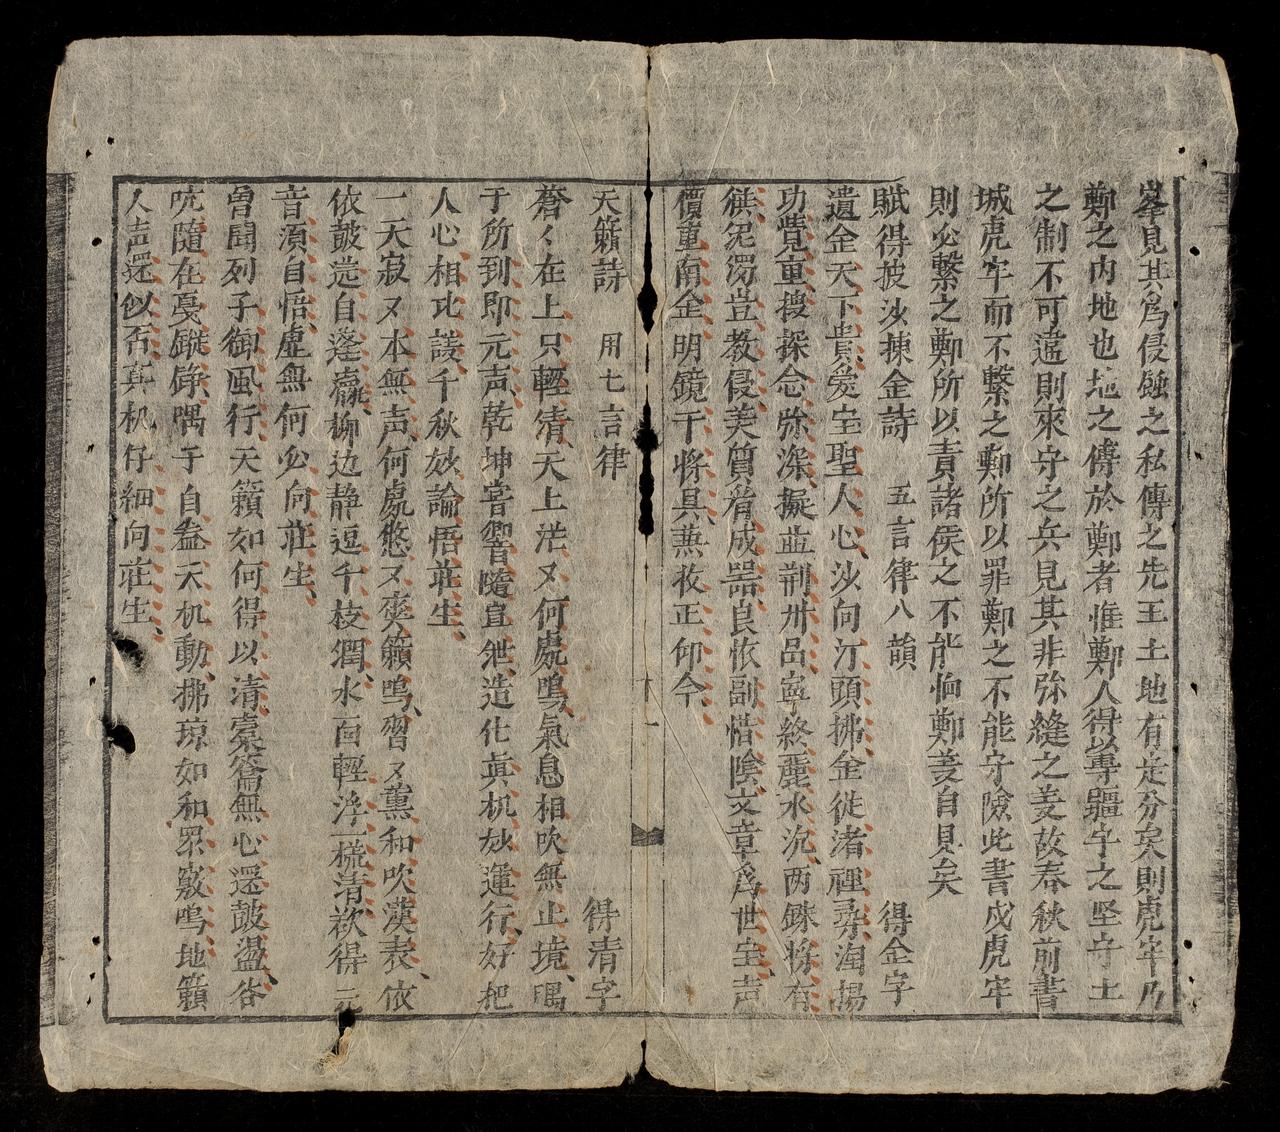 峯見其爲侵蝕之私傳之先王土地有定分矣則虎牢乃
鄭之内地也地之傳於鄭者惟鄭人得以專疆守之坚守土
之制不可違則來守之兵見其非弥縫之姜故春秋前書
城虎牢而不繫之鄭所以罪鄭之不能守險此書戍虎牢
則必繫之鄭所以責諸侯之不能恤鄭姜自見矣
賦得披沙揀金詩 五言律八韻 得金字
遺金天下貴爰宝聖人心沙向汀頭拂金從渚裡尋淘揚
功覺重搜探念弥深擬並荆州品寧終麗水沉两銖將有
泥濁豈教侵美質肴成器良依副惜陰文章爲世宝声
價重南金明鏡干将具無收正仰今
天籟詩 用七言律 得清字
蒼〻在上只輕清天上茫又何處鳴氣息相吹無止境喁
于所到即元声乾坤啻響隨宣泄造化真机妙運行好把
人心相比謗千秋妙論悟莊生
一天寂又本無声何處悠又爽籟鳴習又薫和吹漢表依
依鼓盪自蓬瀛柳边静逗千枝潤水面輕浮一槳清欲得元
音湏自悟虚無何必向莊生
曾聞列子御風行天籟如何得以清橐籥無心還鼓盪谷
吭隨在戞鏦錚喁于自盎天机動拂琼如和眾竅鳴地籟
人声還似否真机仔細向莊生